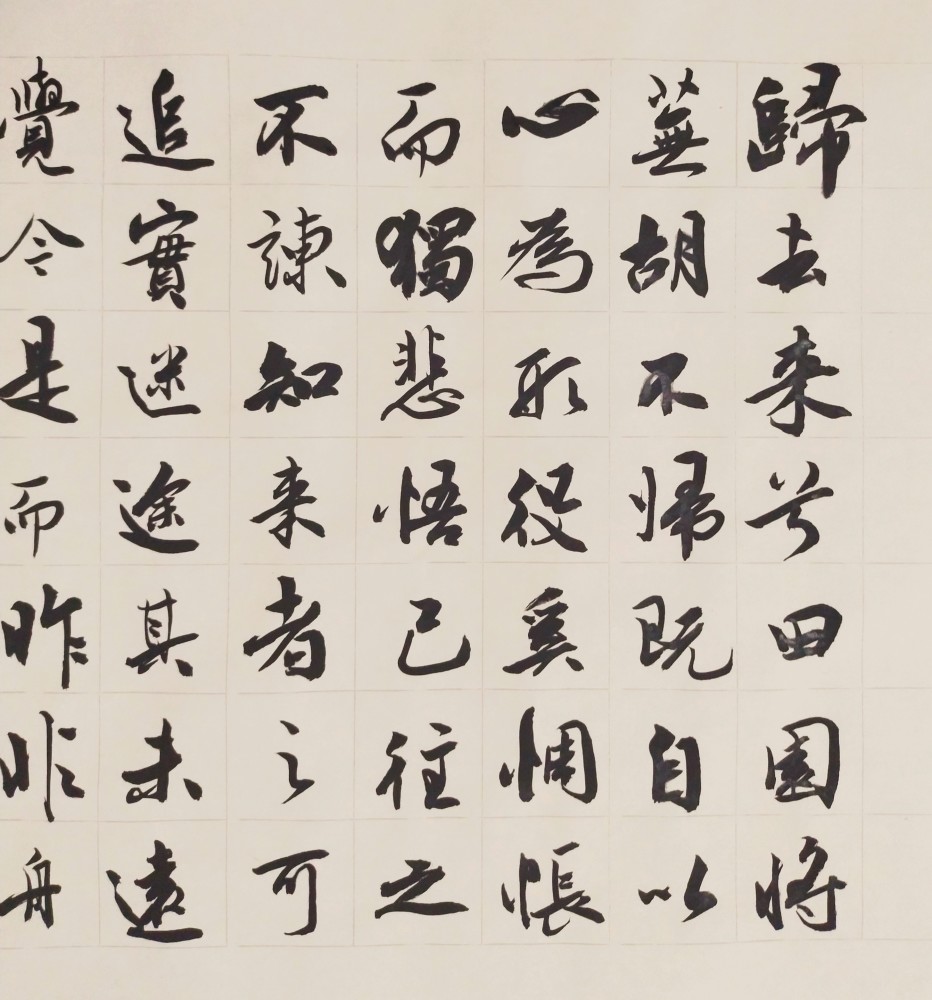 歸去来兮田園将
蕪胡不帰既自以
心為形役奚惆悵
而獨悲悟已往之
不諫知来者之可
追實迷途其未遠
覺今是而昨非舟